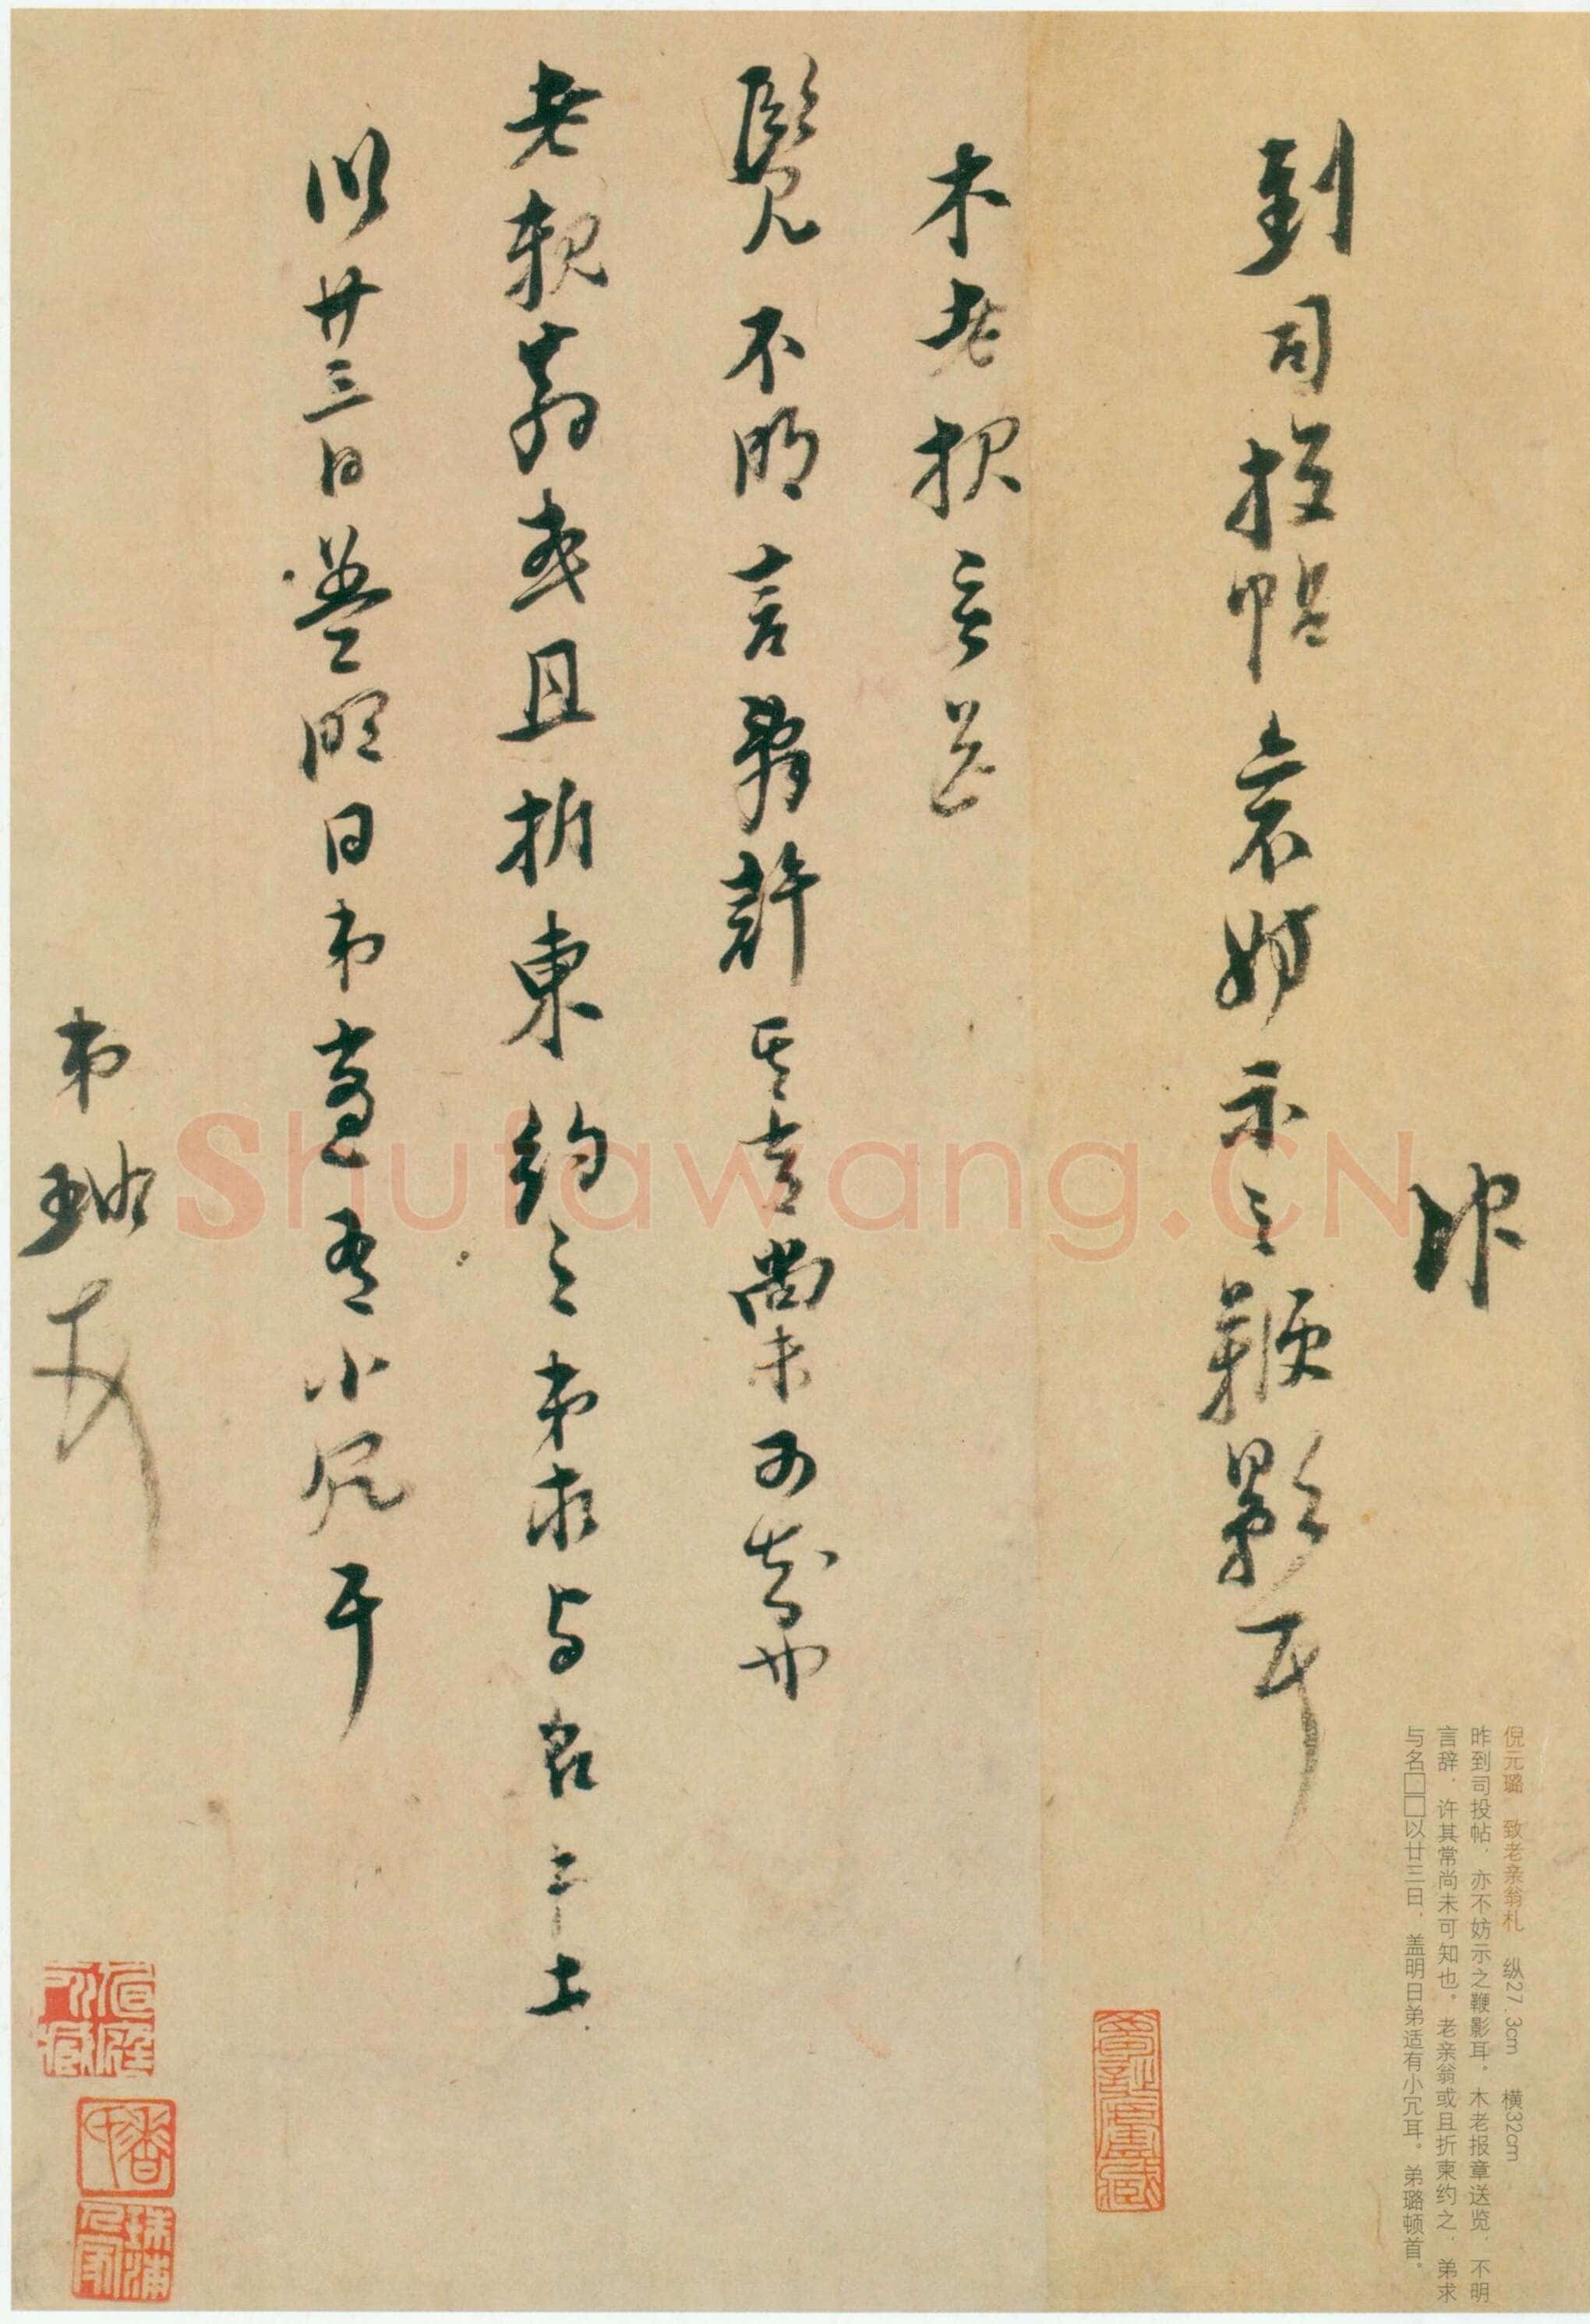 昨
到司投帖亦不妨示之鞭影耳
木老报章送
覽不明言辭許其意尚未可知也
老親翁或且折柬約之弟求与名
以廿三日蓋明日弟适有小冗耳
弟璐
倪元璐 致老亲翁札 纵27.3cm 横32cm
昨到司投帖，亦不妨示之鞭影耳。木老报章送览，不明
言辞，许其常尚未可知也。老亲翁或且折柬约之，弟求
与名□□以廿三日，盖明日弟适有小冗耳。弟璐顿首。
Shufawang.CN